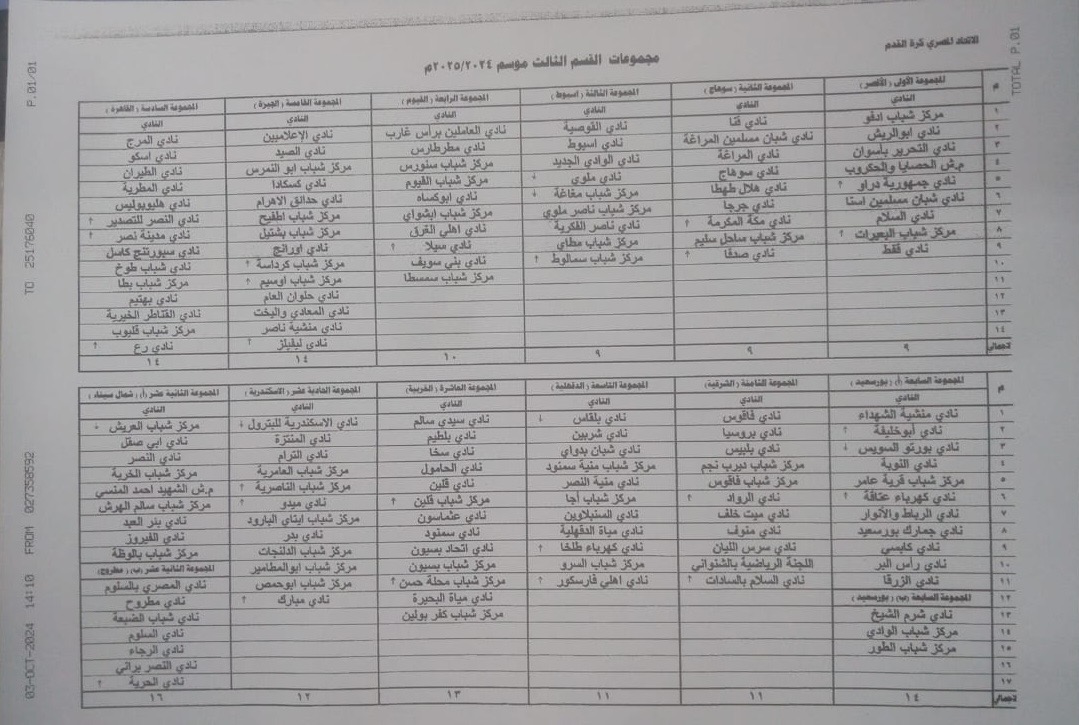 الاتحاد المصري كرة القدم
مجموعات القسم الثالث موسم ٢٠٢٥/٢٠٢٤م
م
المجموعة الأولى ( الأقصر )
النادي
١ مركز شباب ادفو
٢ نادي ابوالريش
٣ نادي التحرير بأسوان
٤ م.ش الحصايا والحكروب
٥ نادي جمهورية دراو ↑
٦ نادي شبان مسلمين اسنا
٧ نادي السلام
٨ مركز شباب البعيرات ↑
٩ نادي قفط
١٠
١١
١٢
١٣
١٤
لاجمالي ٩
المجموعة الثانية ( سوهاج )
النادي
نادي قنا
نادي شبان مسلمين المراغة
نادي المراغة
نادي سوهاج
نادي هلال طهطا
نادي جرجا
نادي مكة المكرمة ↑
مركز شباب ساحل سليم
نادي صدفا ↑
٩
المجموعة الثالثة ( اسيوط )
النادي
نادي القوصية
نادي اسيوط
نادي الوادي الجديد
نادي ملوي ↓
مركز شباب مغاغة ↓
مركز شباب ناصر ملوي
نادي ناصر الفكرية
مركز شباب مطاي
مركز شباب سمالوط ↑
٩
المجموعة الرابعة ( الفيوم )
النادي
نادي العاملين برأس غارب
نادي مطرطارس
مركز شباب سنورس
مركز شباب الفيوم
نادي ابوكساه
مركز شباب ابشواي
نادي اهلي القرق
نادي سيلا ↑
نادي بني سويف
مركز شباب سمسطا
١٠
المجموعة الخامسة ( الجيزة )
النادي
نادي الإعلاميين
نادي الصيد
مركز شباب ابو النمرس
نادي كسكادا
نادي حدائق الاهرام
مركز شباب اطفيح
مركز شباب بشتيل
نادي اورانج
مركز شباب كرداسة ↑
مركز شباب اوسيم ↑
نادي حلوان العام
نادي المعادي واليخت
نادي منشية ناصر
نادي ليفيلز ↑
١٤
المجموعة السادسة ( القاهرة )
النادي
نادي المرج
نادي اسكو
نادي الطيران
نادي المطرية
نادي هليوبوليس
نادي النصر للتصدير ↑
نادي مدينة نصر ↑
نادي سبورتنج كاسل
نادي شباب طوخ
مركز شباب بطا
نادي بهتيم
نادي القناطر الخيرية
مركز شباب قليوب
نادي رع ↑
١٤
م
المجموعة السابعة (أ) ( بورسعيد )
النادي
١ نادي منشية الشهداء
٢ نادي أبوخليفة ↑
٣ نادي بورتو السويس ↓
٤ نادي النوبة
٥ مركز شباب قرية عامر
٦ نادي كهرباء عتاقة ↑
٧ نادي الرباط والأنوار
٨ نادي جمارك بورسعيد
٩ نادي كابسي
١٠ نادي رأس البر
١١ نادي الزرقا
١٢ المجموعة السابعة (ب) ( بورسعيد )
١٣ نادي شرم الشيخ
١٤ مركز شباب الوادي
١٥ مركز شباب الطور
١٦
١٧
لاجمالي ١٤
المجموعة الثامنة (الشرقية)
النادي
نادي فاقوس
نادي بروسيا
نادي بلبيس
مركز شباب ديرب نجم
مركز شباب فاقوس
نادي الرواد ↑
نادي ميت خلف
نادي منوف
نادي سرس الليان
اللجنة الرياضية بالشنواني
نادي السلام بالسادات ↑
١١
المجموعة التاسعة (الدقهلية)
النادي
نادي بلقاس ↓
نادي شربين
نادي شبان بدواي
مركز شباب منية سمنود
نادي منية النصر
مركز شباب أجا
نادي السنبلاوين
نادي مياة الدقهلية
نادي كهرباء طلخا ↑
مركز شباب السرو
نادي اهلي فارسكور ↑
١١
المجموعة العاشرة (الغربية)
النادي
نادي سيدي سالم
نادي بلطيم
نادي سخا
نادي الحامول
نادي قلين
مركز شباب قلين ↑
نادي عثماسون
نادي سمنود
نادي اتحاد بسيون
مركز شباب بسيون
مركز شباب محلة حسن ↑
نادي مياة البحيرة
مركز شباب كفر بولين
١٣
المجموعة الحادية عشر (الاسكندرية)
النادي
نادي الاسكندرية للبترول ↓
نادي المنتزة
نادي الترام
مركز شباب العامرية
مركز شباب الناصرية ↑
نادي ميدو ↑
مركز شباب ايتاي البارود
نادي بدر
مركز شباب الدلنجات
مركز شباب ابوالمطامير
مركز شباب ابوحمص
نادي مبارك ↑
١٢
المجموعة الثانية عشر (أ) ( شمال سيناء )
النادي
مركز شباب العريش ↓
نادي ابي صقل
نادي النصر
مركز شباب الخربة
م.ش الشهيد احمد المنسي
مركز شباب سالم الهرش
نادي بئر العبد
نادي الفيروز
مركز شباب بالوظة
المجموعة الثانية عشر (ب) ( مطروح )
نادي المصري بالسلوم
نادي مطروح
نادي شباب الضبعة
نادي السلوم
نادي الرجاء
نادي النصر براني
نادي الحرية ↑
١٦
03-OCT-2024 14:10 FROM 027358592 TO 25176040 P.01/01
TOTAL P.01